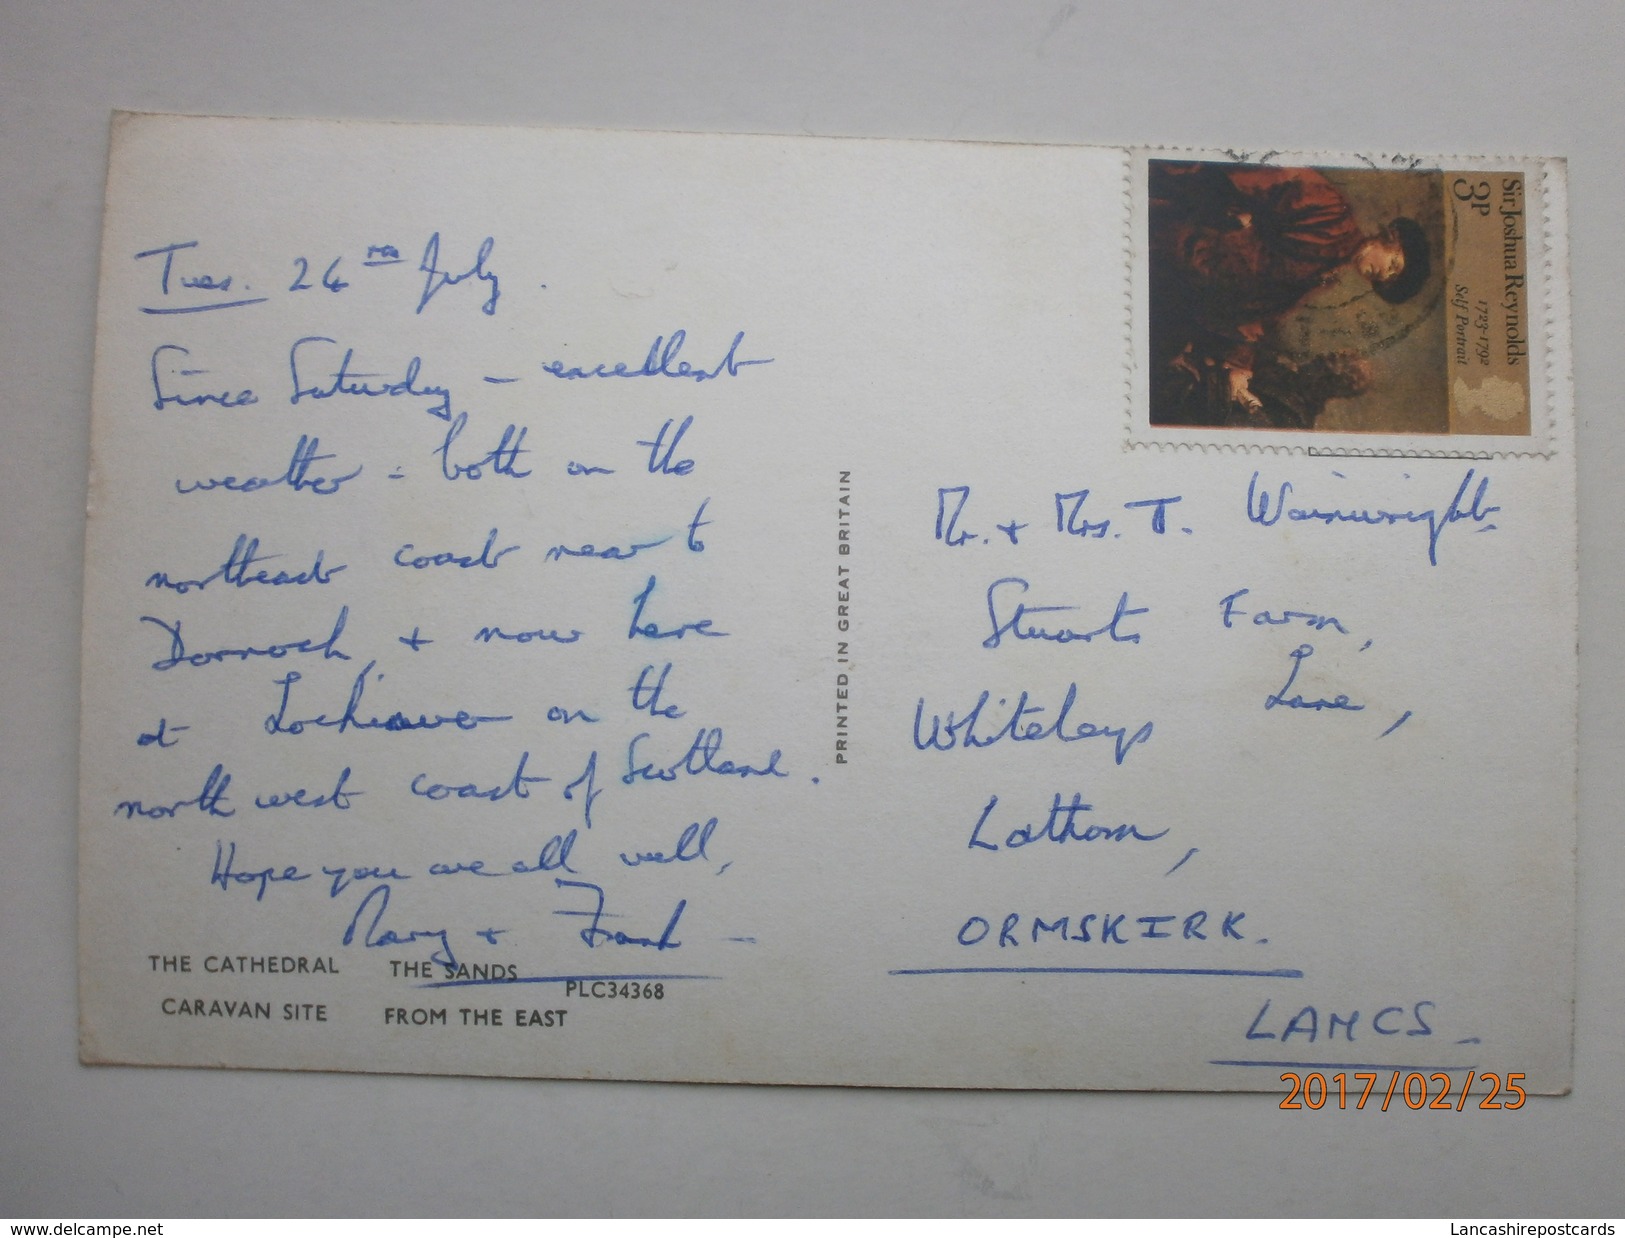 Tues. 24th July.
Since Saturday – excellent
weather – both on the
northeast coast near to
Dornoch, + now here
at Lochinver on the
north west coast of Scotland.
Hope you are all well,
Mary + Frank –
THE CATHEDRAL THE SANDS
PLC34368
CARAVAN SITE FROM THE EAST
PRINTED IN GREAT BRITAIN
Sir Joshua Reynolds
1723-1792
3P
Self Portrait
Mr. + Mrs. T. Wainwright
Stuarts Farm,
Whiteleys Lane,
Lathom,
ORMSKIRK.
LANCS.
2017/02/25
www.delcampe.net
Lancashirepostcards